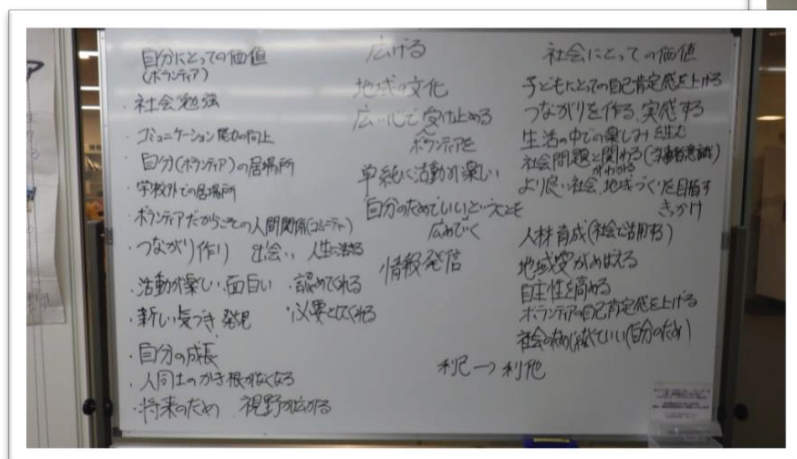 自分にとっての価値
(ボランティア)
・社会勉強
コミュニケーション能力の向上
・自分(ボランティア)の居場所
・学校外での居場所
・ボランティアだからこその人間関係(コミュニティ)
・つながり作り 出会い 人生に活きる
・活動が楽しい、面白い 認めてくれる
・新しい気づき 発見 必要としてくれる
・自分の成長
・人同士のかき根がなくなる
・将来のため 視野が広がる
広げる
地域の文化
広い心で受け止める
ボランティアを
単純に活動が楽しい
自分のためでいいということも
広めていく
情報発信
利己→利他
社会にとっての価値
子どもにとっての自己肯定感を上げる
つながりを作る、実感する
生活の中での楽しみを生む
社会問題と関わる(当事者意識)
がわかる
より良い社会、地域づくりを目指す
きっかけ
人材育成(社会で活用する)
地域愛がめばえる
自主性を高める
ボランティアの自己肯定感を上げる
社会のためじゃなくていい(自分のため)